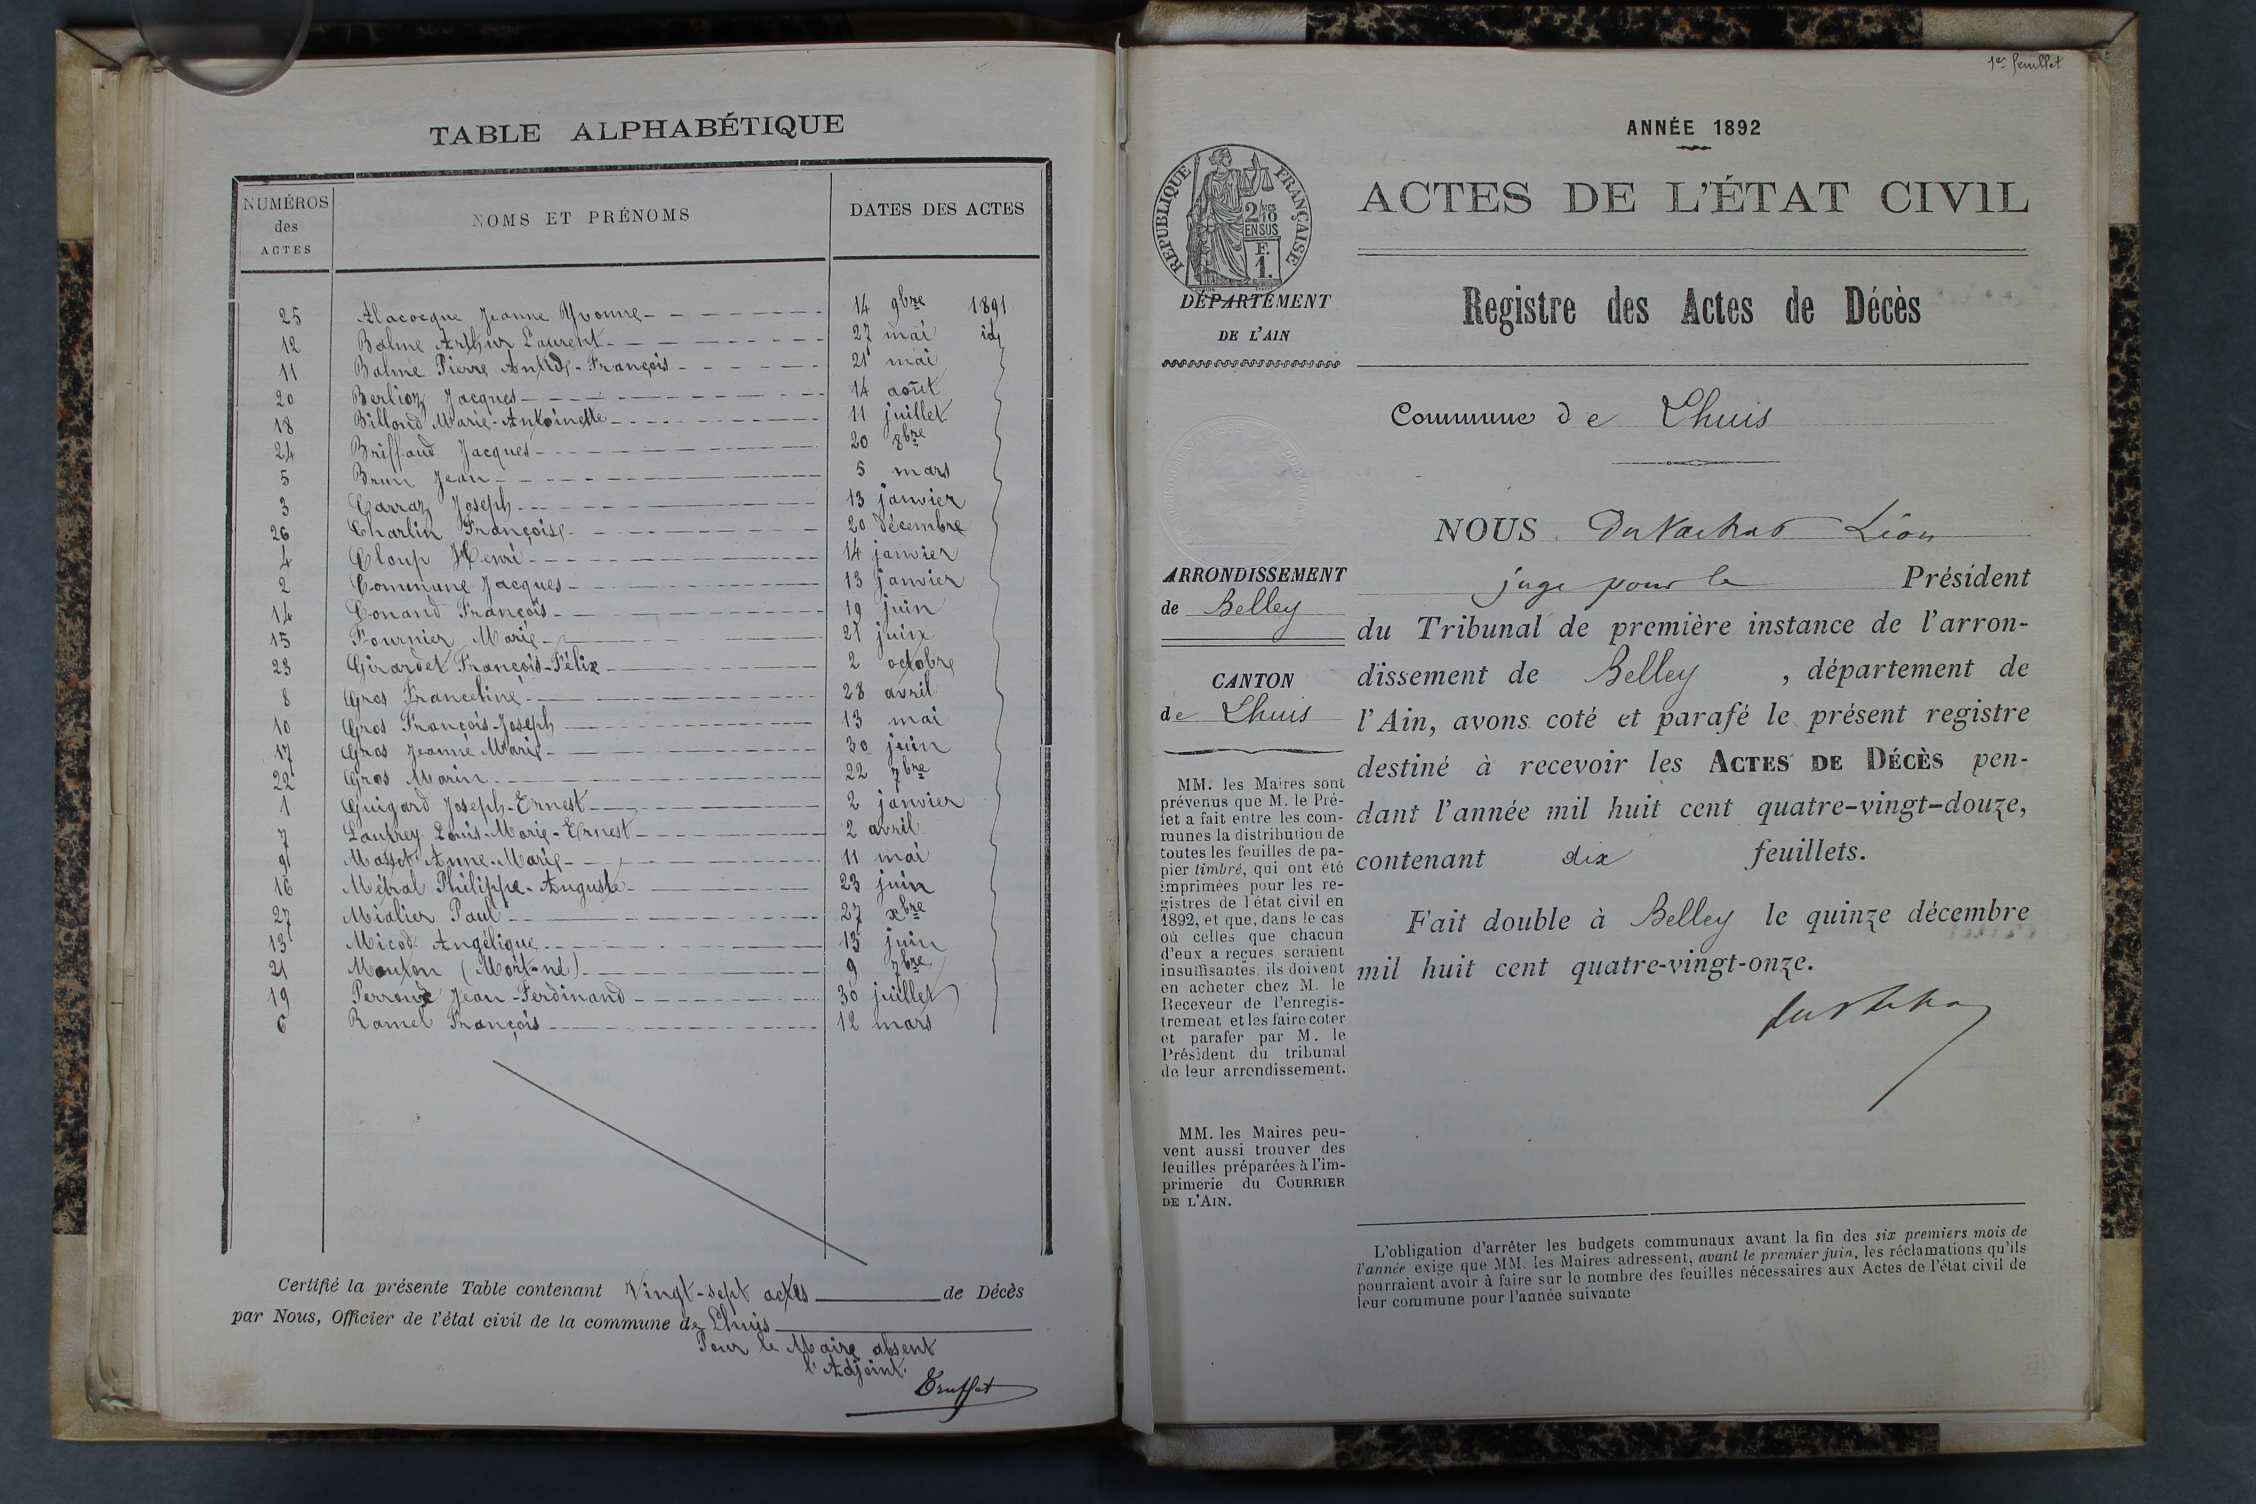 TABLE ALPHABÉTIQUE
NUMÉROS des ACTES NOMS ET PRÉNOMS DATES DES ACTES
25 Alacocque Jeanne Yvonne 14 9bre 1891
12 Balme Arthur Laurent 27 mai id
11 Balme Pierre André-François 21 mai
20 Berlioz Jacques 14 août
18 Billond Marie-Antoinette 11 juillet
24 Briffaud Jacques 20 8bre
5 Brun Jean 5 mars
3 Carraz Joseph 13 janvier
26 Charlin Françoise 20 décembre
4 Cloup Henri 14 janvier
2 Commune Jacques 13 janvier
14 Conand François 19 juin
15 Fournier Marie 21 juin
23 Girardet François-Félix 2 octobre
8 Gros Franceline 28 avril
10 Gros François-Joseph 13 mai
17 Gros Jeanne Marie 30 juin
22 Gros Marin 22 7bre
1 Guigard Joseph-Ernest 2 janvier
7 Laufrey Louis-Marie-Ernest 2 avril
9 Masset Anne-Marie 11 mai
16 Métral Philippe-Auguste 23 juin
27 Mialier Paul 27 xbre
13 Micod Angélique 13 juin
21 Mouton (Mort-né) 9 7bre
19 Perroud Jean-Ferdinand 30 juillet
6 Ramel François 12 mars
Certifié la présente Table contenant Vingt-sept actes de Décès
par Nous, Officier de l'état civil de la commune de Lhuis
Pour le Maire absent
l'Adjoint.
Truffet
1er feuillet
ANNÉE 1892
RÉPUBLIQUE FRANÇAISE
2/10 EN SUS
F.
1.
ACTES DE L'ÉTAT CIVIL
Registre des Actes de Décès
DÉPARTEMENT
DE L'AIN
Commune de Lhuis
NOUS Léon
juge pour le Président
ARRONDISSEMENT
de Belley
du Tribunal de première instance de l'arron-
dissement de Belley, département de
l'Ain, avons coté et parafé le présent registre
destiné à recevoir les ACTES DE DÉCÈS pen-
dant l'année mil huit cent quatre-vingt-douze,
contenant dix feuillets.
Fait double à Belley le quinze décembre
mil huit cent quatre-vingt-onze.
CANTON
de Lhuis
MM. les Maires sont
prévenus que M. le Pré-
fet a fait entre les com-
munes la distribution de
toutes les feuilles de pa-
pier timbré, qui ont été
imprimées pour les re-
gistres de l'état civil en
1892, et que, dans le cas
où celles que chacun
d'eux a reçues seraient
insuffisantes, ils doivent
en acheter chez M. le
Receveur de l'enregis-
trement et les faire coter
et parafer par M. le
Président du tribunal
de leur arrondissement.
MM. les Maires peu-
vent aussi trouver des
feuilles préparées à l'im-
primerie du COURRIER
DE L'AIN.
L'obligation d'arrêter les budgets communaux avant la fin des six premiers mois de
l'année exige que MM. les Maires adressent, avant le premier juin, les réclamations qu'ils
pourraient avoir à faire sur le nombre des feuilles nécessaires aux Actes de l'état civil de
leur commune pour l'année suivante